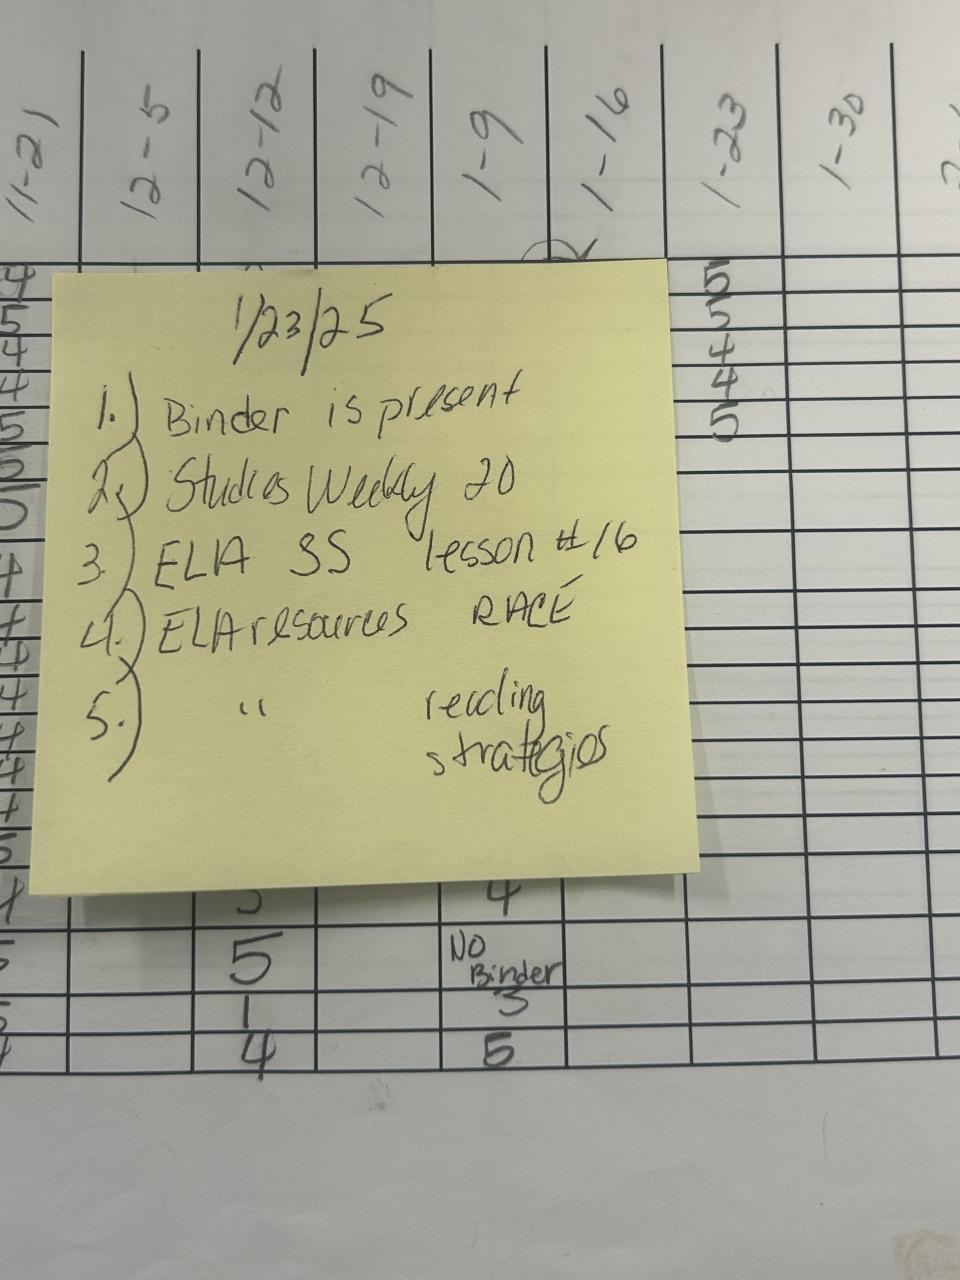 11-21 12-5 12-12 12-19 1-9 1-16 1-23 1-30
4 5
5 5
4 4
4 4
5 5
5
1/23/25
1.) Binder is present
2.) Studies Weekly 20
3.) ELA SS lesson #16
4.) ELA resources RACE
5.) " reading
strategies
4
5 NO
Binder
1 3
4 5